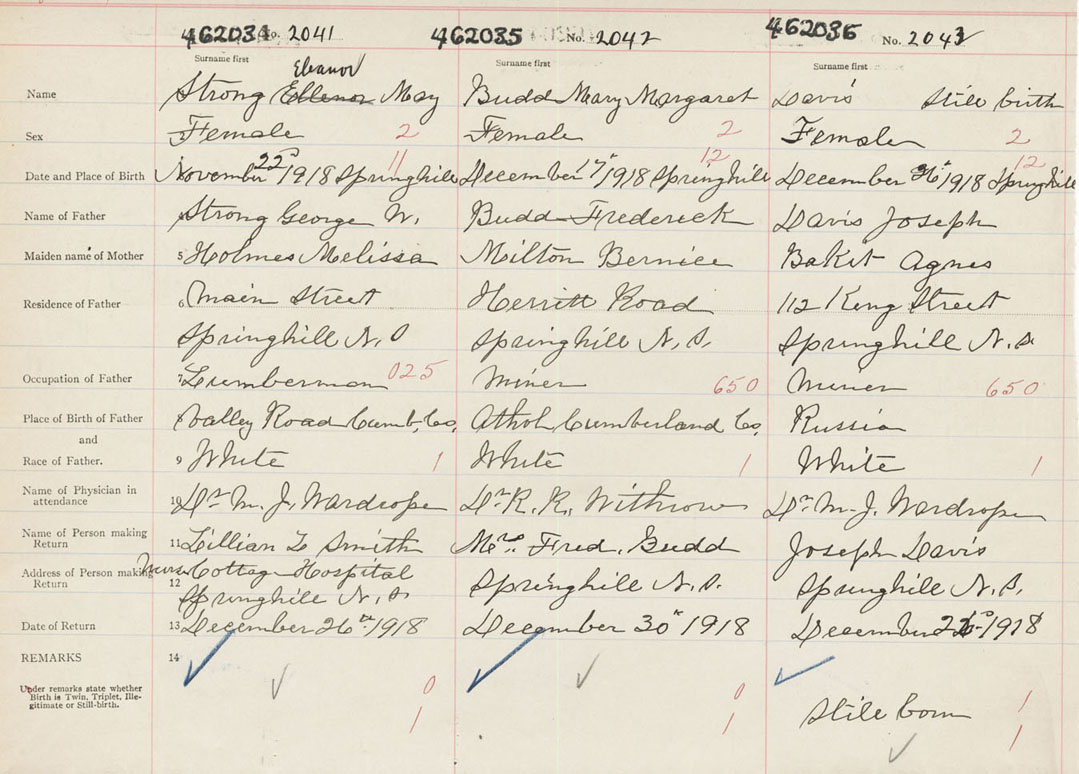 462034 No. 2041 462035 No. 2042 462036 No. 2043
Surname first Surname first Surname first
Eleanor
Name Strong Ellenor May Budd Mary Margaret Davis Stile birth
Sex Female 2 Female 2 Female 2
11 12 12
Date and Place of Birth November 22d 1918 Springhill December 17th 1918 Springhill December 26th 1918 Springhill
Name of Father Strong George W. Budd Frederick Davis Joseph
Maiden name of Mother 5 Holmes Melissa Milton Bernice Baket Agnes
Residence of Father 6 Main Street Herritt Road 112 King Street
Springhill N.S Springhill N.S. Springhill N.S.
Occupation of Father 7 Lumberman 025 Miner 650 Miner 650
Place of Birth of Father 8 Valley Road Cumb. Co. Athol Cumberland Co. Russia
and
Race of Father. 9 White 1 White 1 White 1
Name of Physician in
attendance 10 Dr M. J. Wardrope Dr R. R. Withrow Dr M. J. Wardrope
Name of Person making
Return 11 Lillian L Smith Mrs. Fred. Budd Joseph Davis
Address of Person making Nurse Cottage Hospital
Return 12 Springhill N.S. Springhill N.S. Springhill N.S.
Date of Return 13 December 26th 1918 December 30th 1918 December 1918
REMARKS 14
Under remarks state whether
Birth is Twin, Triplet, Ille- 0 0 1
gitimate or Still-birth. Stile born
1 1 1